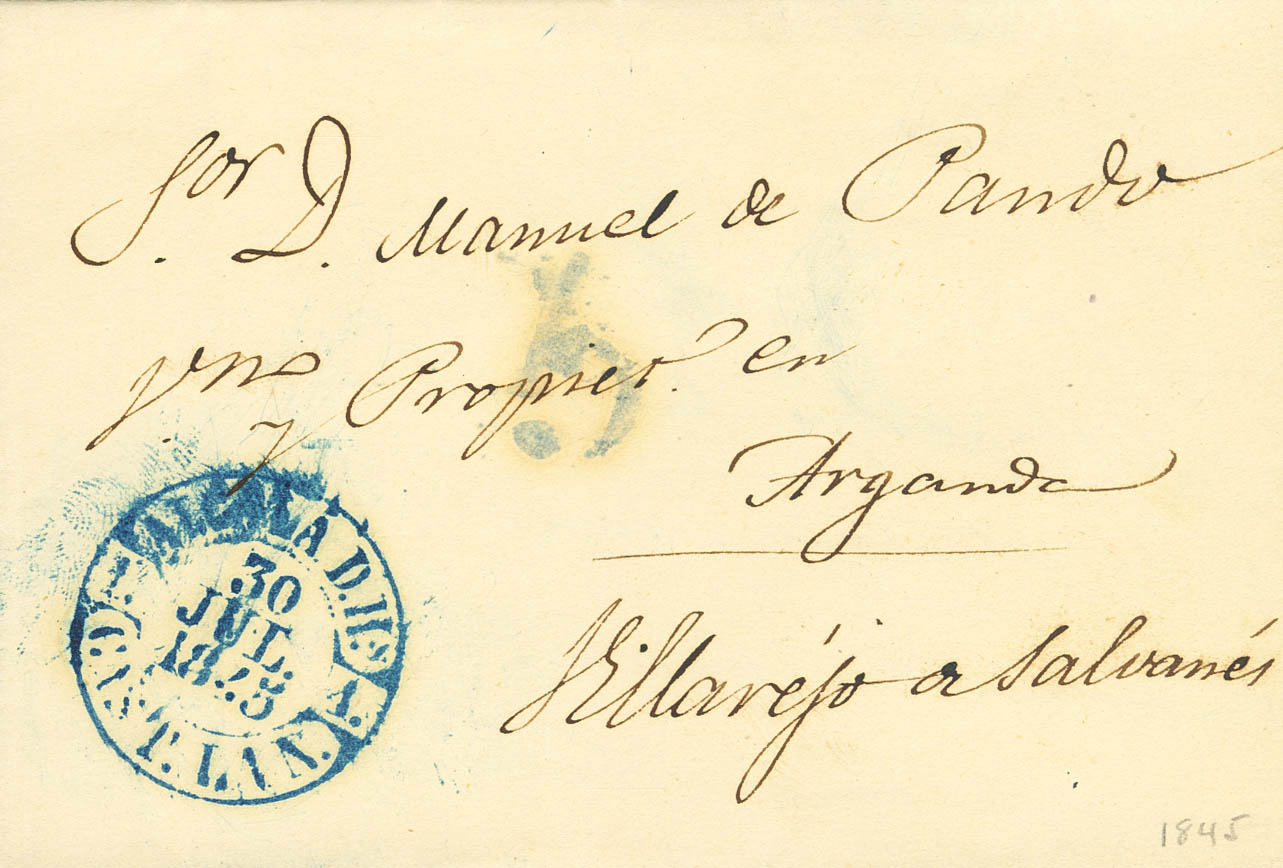 Sor. D. Manuel de Pando
y Propiet.º en
Arganda
Villaréjo de Salvanés
ALCALA D. HS
30
JUL.
1845
CAST. LA N.
1845